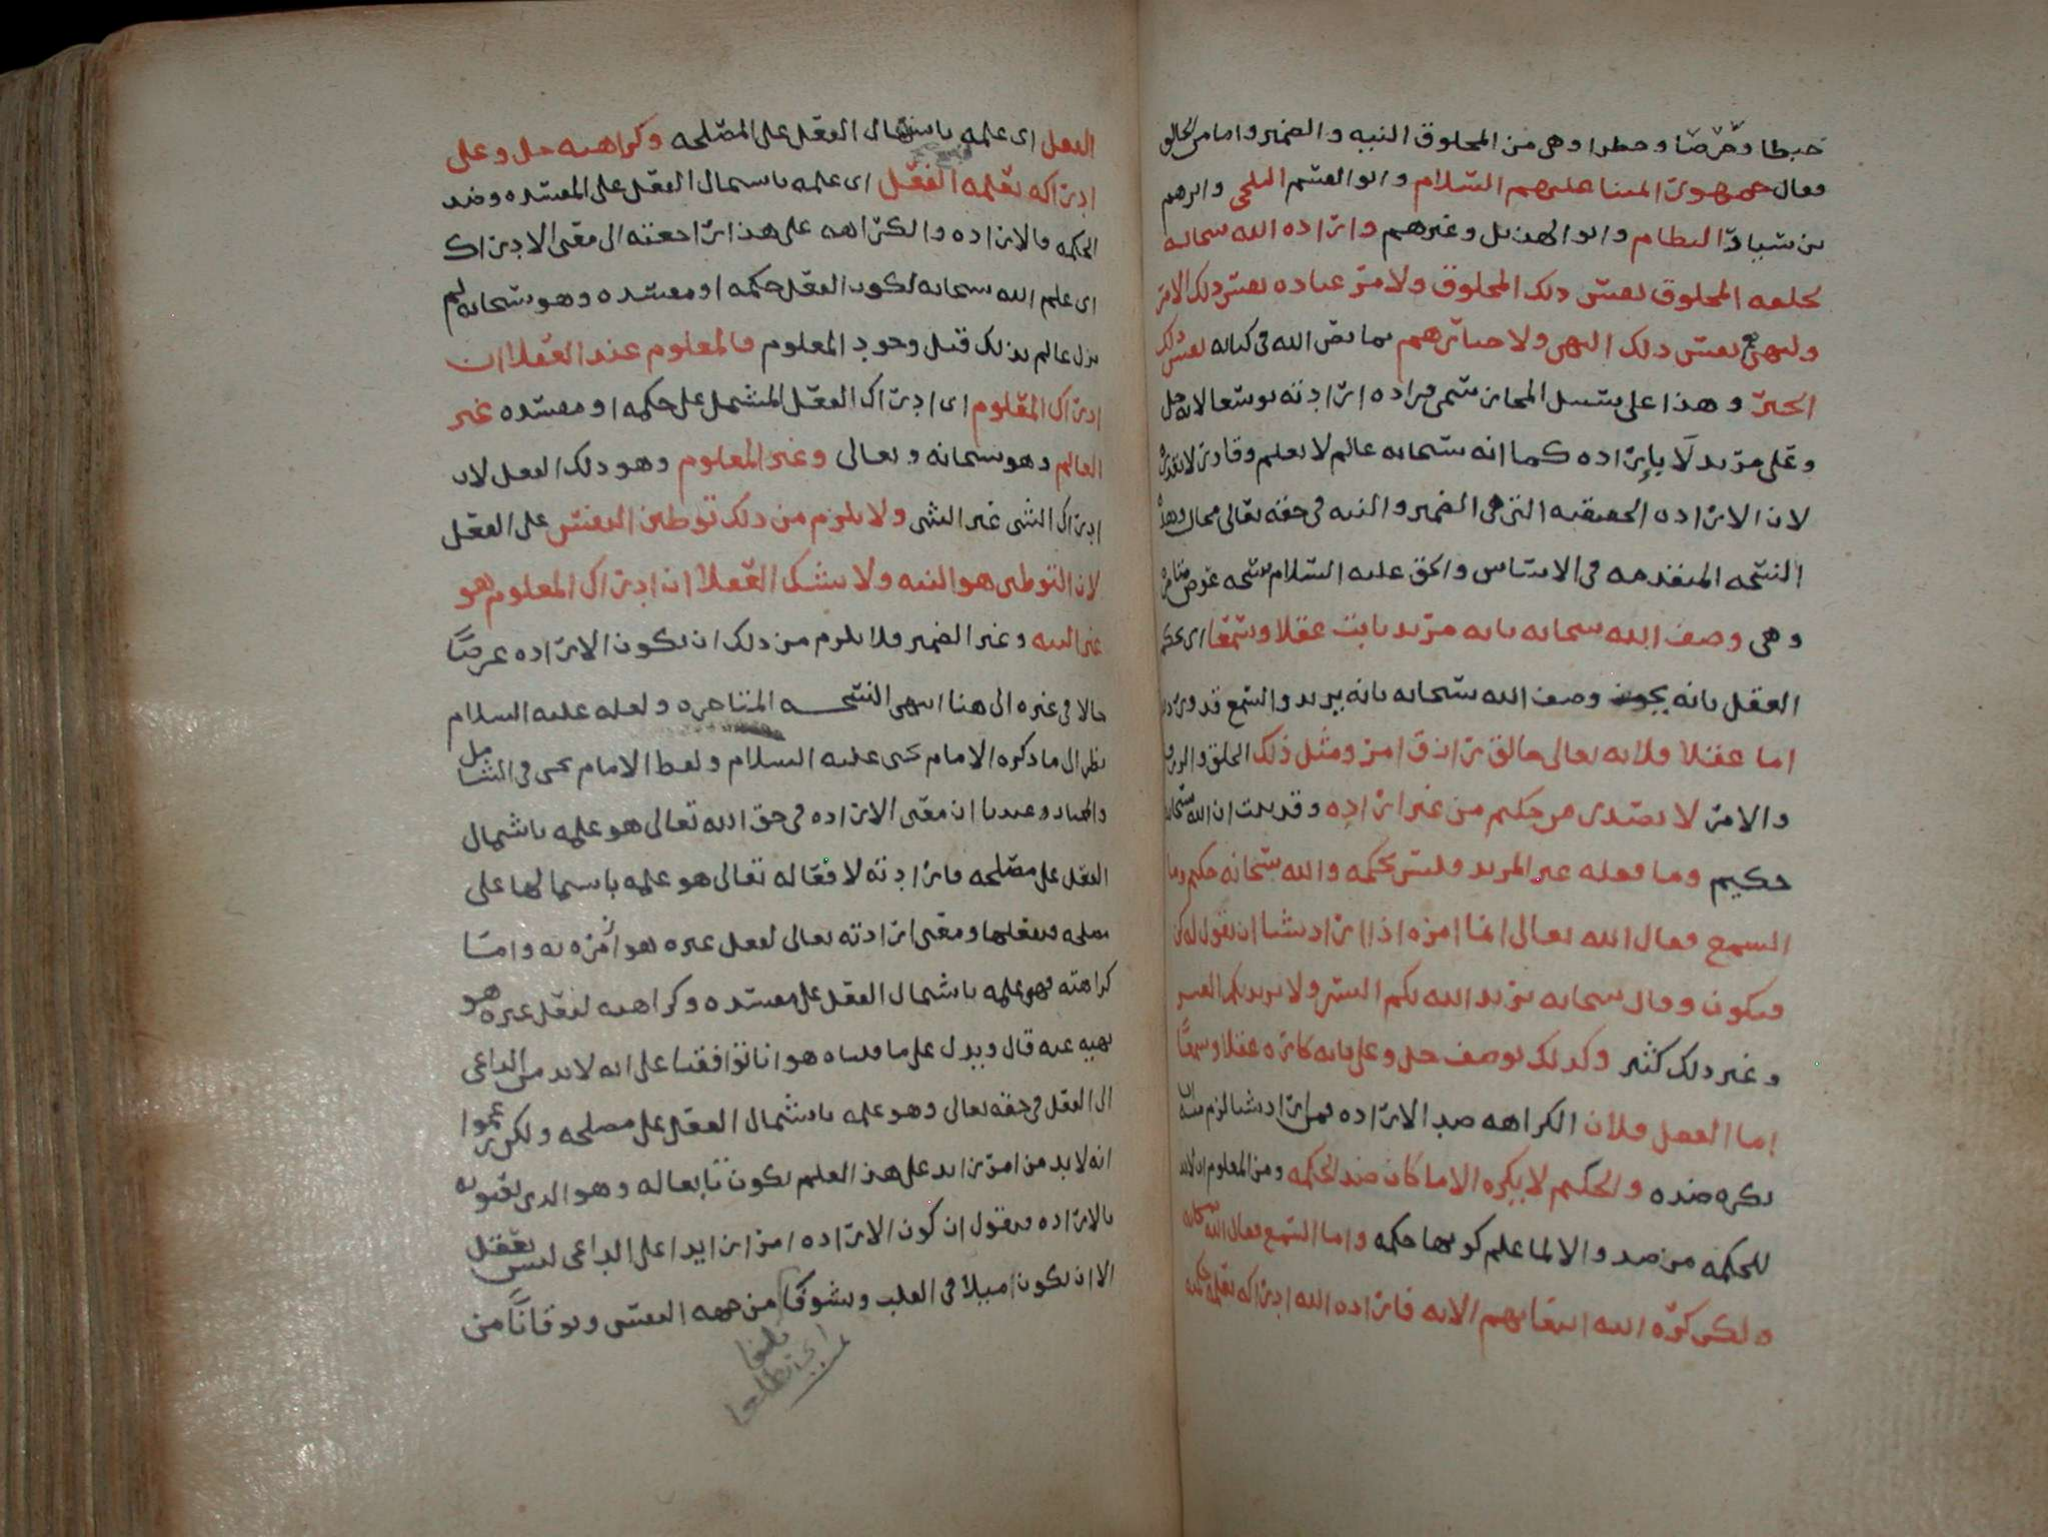 خبطا وخرصا وخطرا وهي من المخلوق النيه والضمير واما من الخالق
فقال جمهور ائمتنا عليهم السلام وابو القسم البلخي وابرهيم
بن سيار النظام وابو الهذيل وغيرهم وارادة الله سبحانه
لخلقه المخلوق نفس ذلك المخلوق ولامر عباده نفس ذلك الامر
ولنهيهم نفس ذلك النهي ولاخبارهم بما نص الله في كتابه نفس ذلك
الخبر وهذا على سبيل المجاز سمي مراده ارادته توسعا لانه جل
وعلى مريد لا بإراده كما انه سبحانه عالم لا بعلم وقادر لا بقدرة
لان الاراده الحقيقيه التي هي الضمير والنيه في حقه تعالى محال وهذه
النسخه المتقدمه في الاساس والحق عليه السلام نسخه عوض متاخره
وهي وصف الله سبحانه بانه مريد ثابت عقلا وسمعا اي يحكم
العقل بانه يجوز وصف الله سبحانه بانه يريد والسمع قد ورد به
اما عقلا فلانه تعالى خالق رازق امر ومثل ذلك الخلق والرزق
والامر لا يصدر من حكيم من غير اراده وقد ثبت ان الله سبحانه
حكيم وما فعله غير المريد فليس بحكمه والله سبحانه حكيم واما
السمع فقال الله تعالى انما امره اذا اراد شيا ان يقول له كن
فيكون وقال سبحانه يريد الله بكم اليسر ولا يريد بكم العسر
وغير ذلك كثير وكذلك يوصف جل وعلى بانه كاره عقلا وسمعا
اما العقل فلان الكراهه ضد الاراده فمن اراد شيا لزم منه ان
يكره ضده والحكيم لا يكره الا ما كان ضد الحكمه ومن المعلوم ان لابد
للحكمه من ضد والا لما علم كونها حكمه واما السمع فقال الله سبحانه
ولكن كره الله انبعاثهم الايه فارادة الله ادراكه بعلمه حكمة
الفعل اي علمه باشتمال الفعل على المصلحه وكراهته جل وعلى
ادراكه بعلمه الفعل اي علمه باشتمال الفعل على المفسده وضد
الحكمه فالاراده والكراهه على هذا راجعه الى معنى الادراك
اي علم الله سبحانه بكون الفعل حكمه او مفسده وهو سبحانه لم
يزل عالم بذلك قبل وجود المعلوم فالمعلوم عند العقلا ان
ادراك المعلوم اي ادراك الفعل المشتمل على حكمه او مفسده غير
العالم وهو سبحانه وتعالى وغير المعلوم وهو ذلك الفعل لان
ادراك الشي غير الشي ولا يلزم من ذلك توطين النفس على الفعل
لان التوطين هو النيه ولا يشك العقلا ان ادراك المعلوم هو
غير النيه وغير الضمير فلا يلزم من ذلك ان تكون الاراده عرضا
حالا في غيره الى هنا انتهى النسخه المتاخره ولعله عليه السلام
نظر الى ما ذكره الامام يحيى عليه السلام ولفظ الامام يحيى في الشامل
والمختار عندنا ان معنى الاراده في حق الله تعالى هو علمه باشتمال
الفعل على مصلحه فارادته لافعاله تعالى هو علمه باشتمالها على
مصلحه فيفعلها ومعنى ارادته تعالى لفعل غيره هو امره به واما
كراهته فهو علمه باشتمال الفعل على مفسده وكراهته لفعل غيره هو
نهيه عنه قال ويدل على ما قلناه هو انا توافقنا على انه لابد من الداعي
الى الفعل في حقه تعالى وهو علمه باشتمال الفعل على مصلحه ولكن زعموا
انه لابد من امر زايد على هذا العلم يكون تابعا له وهو الذي يعنونه
بالاراده فنقول ان كون الاراده امر زايدا على الداعي ليس يعقل
الا ان يكون ميلا في القلب وتشوقا من جهه النفس وتوقانا من